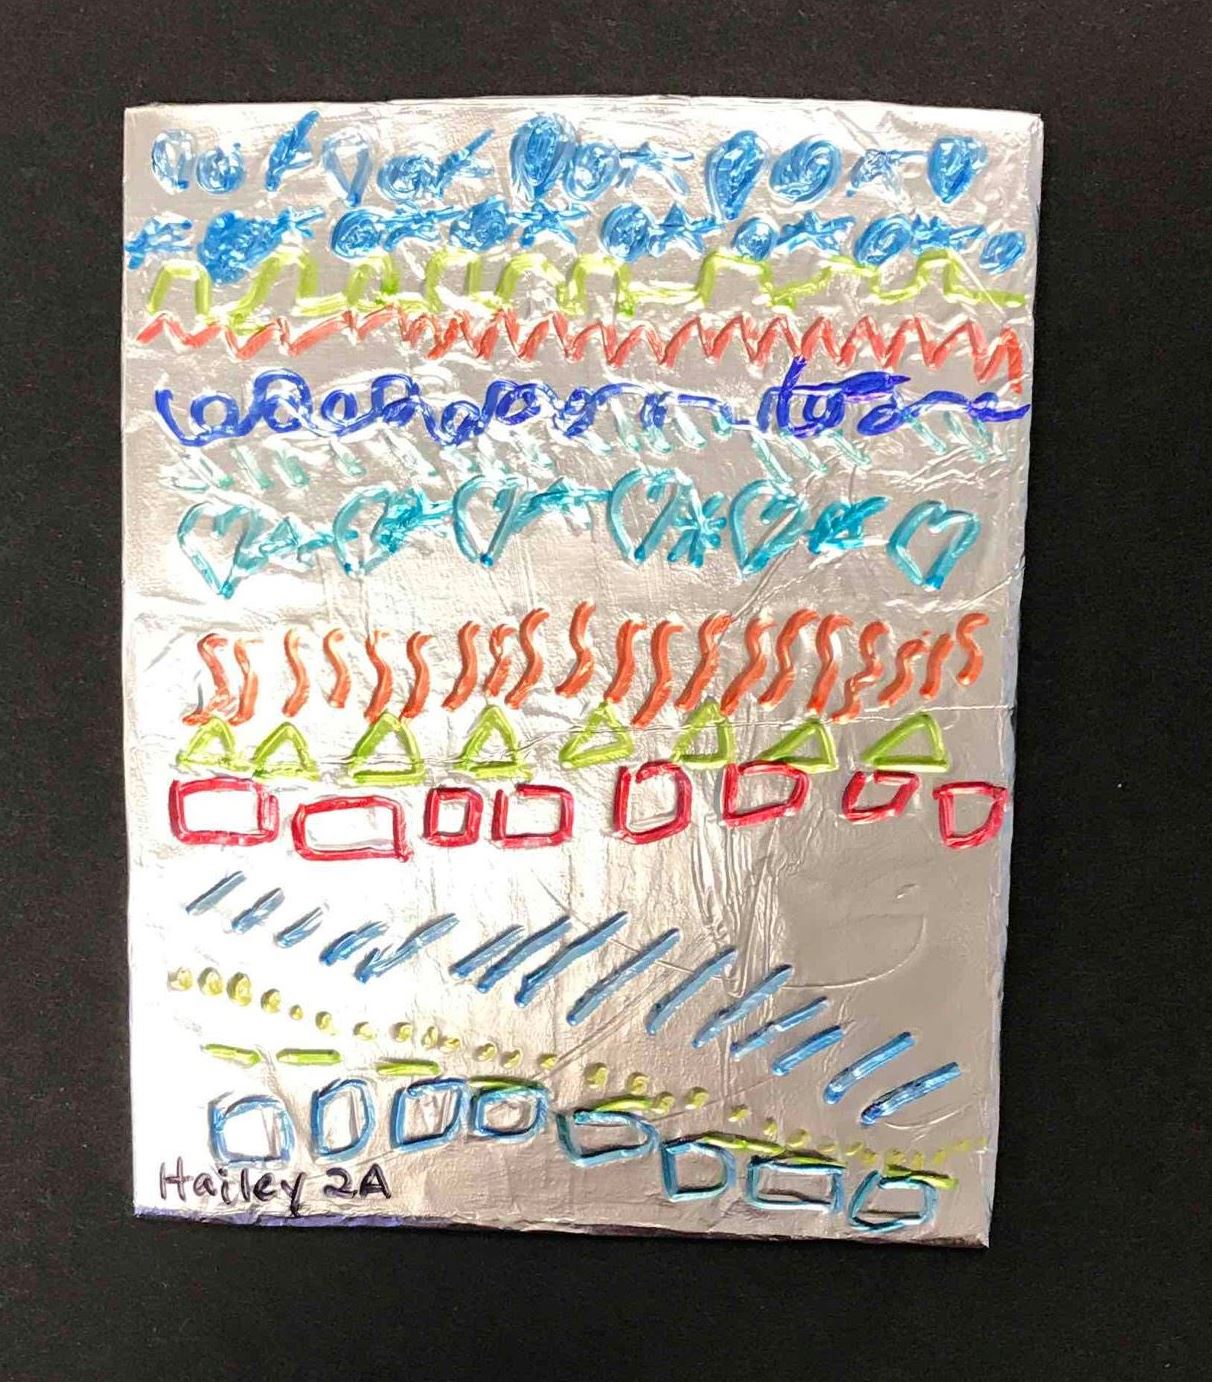 Hailey 2A